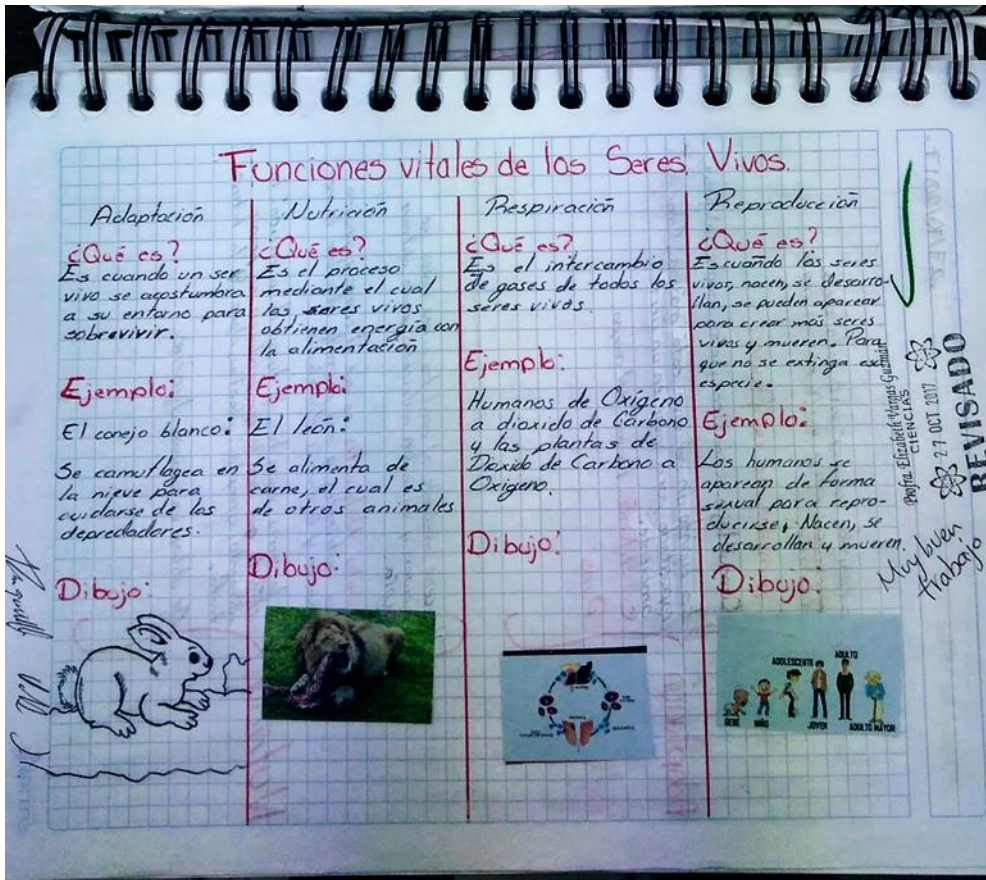 Funciones vitales de los Seres Vivos.
Adaptación
¿Qué es?
Es cuando un ser
vivo se acostumbra
a su entorno para
sobrevivir.
Ejemplo:
El conejo blanco:
Se camuflagea en
la nieve para
cuidarse de los
depredadores.
Dibujo:
Nutrición
¿Qué es?
Es el proceso
mediante el cual
los seres vivos
obtienen energía con
la alimentación
Ejemplo:
El león:
Se alimenta de
carne, el cual es
de otros animales
Dibujo:
Respiración
¿Qué es?
Es el intercambio
de gases de todos los
seres vivos.
Ejemplo:
Humanos de Oxígeno
a dioxido de Carbono
y las plantas de
Dioxido de Carbono a
Oxígeno.
Dibujo:
Reproducción
¿Qué es?
Es cuando los seres
vivos, nacen, se desarro-
llan, se pueden aparear
para crear más seres
vivos y mueren. Para
que no se extinga esa
especie.
Ejemplo:
Los humanos se
aparean de forma
sexual para repro-
ducirse, Nacen, se
desarrollan y mueren.
Dibujo:
BEBÉ
NIÑO
ADOLESCENTE
JOVEN
ADULTO
ADULTO MAYOR
Profra. Elizabeth Vargas Guzmán
CIENCIAS
27 OCT 2017
REVISADO
Muy buen
trabajo